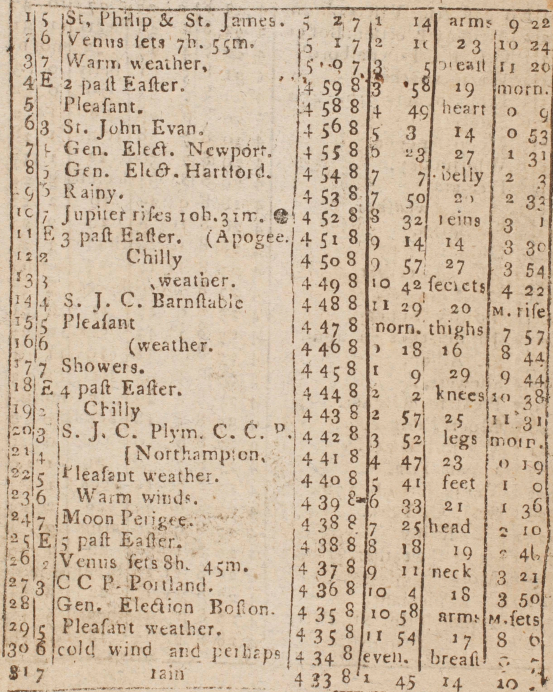 1 5 St, Philip & St. James. 5 2 7 1 14 arms 9 22
2 6 Venus ſets 7h. 55m. 5 1 7 2 23 10 24
3 7 Warm weather, 5 0 7 3 5 11 20
4 E 2 paſt Eaſter. 4 59 8 3 58 19 morn.
5 Pleaſant. 4 58 8 4 49 heart 0 9
6 3 St. John Evan. 4 56 8 5 3 14 0 53
7 4 Gen. Elect. Newport. 4 55 8 6 23 27 1 31
8 5 Gen. Elect. Hartford. 4 54 8 7 7 belly 2 3
9 6 Rainy. 4 53 8 7 50 2
10 7 Jupiter riſes 10h.31m. 4 52 8 8 32 reins 3 1
11 E 3 paſt Eaſter. (Apogee. 4 51 8 9 14 14 3 30
12 2 Chilly 4 50 8 9 57 27 3 54
13 3 weather. 4 49 8 10 42 ſecrets 4 22
14 4 S. J. C. Barnſtable 4 48 8 11 29 20 M. riſe
15 5 Pleaſant 4 47 8 morn. thighs 7 57
16 6 (weather. 4 46 8 0 18 16 8 44
17 7 Showers. 4 45 8 1 9 29 9 44
18 E 4 paſt Eaſter. 4 44 8 2 2 knees 10 38
19 2 Chilly 4 43 8 2 57 25 11 31
20 3 S. J. C. Plym. C. C. P. 4 42 8 3 52 legs morn.
21 4 [Northampton, 4 41 8 4 47 23 0 19
22 5 Pleaſant weather. 4 40 8 5 41 feet 1 0
23 6 Warm winds. 4 39 8 6 33 21 1 36
24 7 Moon Perigee. 4 38 8 7 25 head 2 10
25 E 5 paſt Eaſter. 4 38 8 8 18 19 2 46
26 2 Venus ſets 8h. 45m. 4 37 8 9 11 neck 3 21
27 3 C C P. Portland. 4 36 8 10 4 18 3 50
28 Gen. Election Boſton. 4 35 8 10 58 arms M. ſets
29 5 Pleaſant weather. 4 35 8 11 54 17 8 6
30 6 cold wind and perhaps 4 34 8 even. breaſt
31 7 rain 4 33 8 1 45 14 10